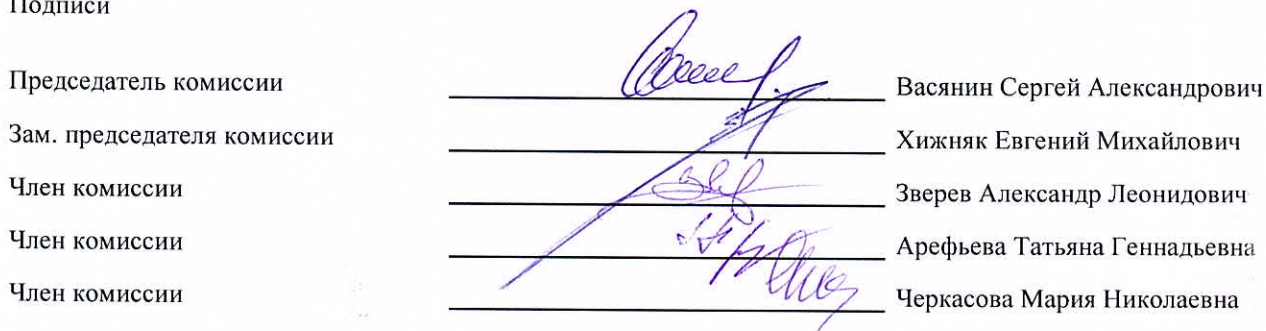 Подписи
Председатель комиссии Васянин Сергей Александрович
Зам. председателя комиссии Хижняк Евгений Михайлович
Член комиссии Зверев Александр Леонидович
Член комиссии Арефьева Татьяна Геннадьевна
Член комиссии Черкасова Мария Николаевна